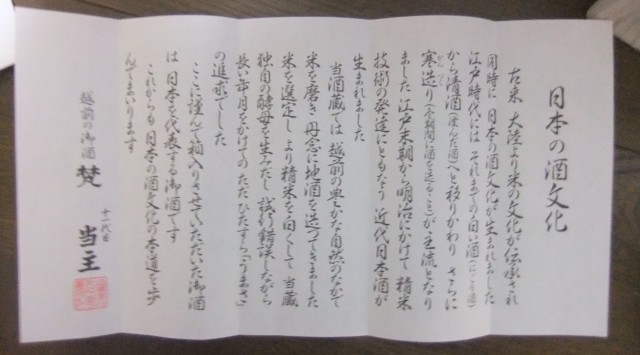 日本の酒文化
古来 大陸より米の文化が伝承され
同時に 日本の酒文化が生まれました
江戸時代には それまでの白い酒(にごり酒)
から清酒(澄んだ酒)へと移りかわり さらに
寒造り(冬期間に酒を造ること)が 主流となり
ました 江戸末期から明治にかけて 精米
技術の発達にともなう 近代日本酒が
生まれました
当酒蔵では 越前の豊かな自然のなかで
米を磨き 丹念に地酒を造ってきました
米を選定し より精米を白くして 当蔵
独自の酵母を生みだし 試行錯誤しながら
長い年月をかけての ただひたすら「うまさ」
の追求でした
ここに謹んで箱入りさせていただいた御酒
は 日本を代表する御酒です
これからも 日本の酒文化の本道を歩
んでまいります
越前の御酒 梵
十一代目 当主